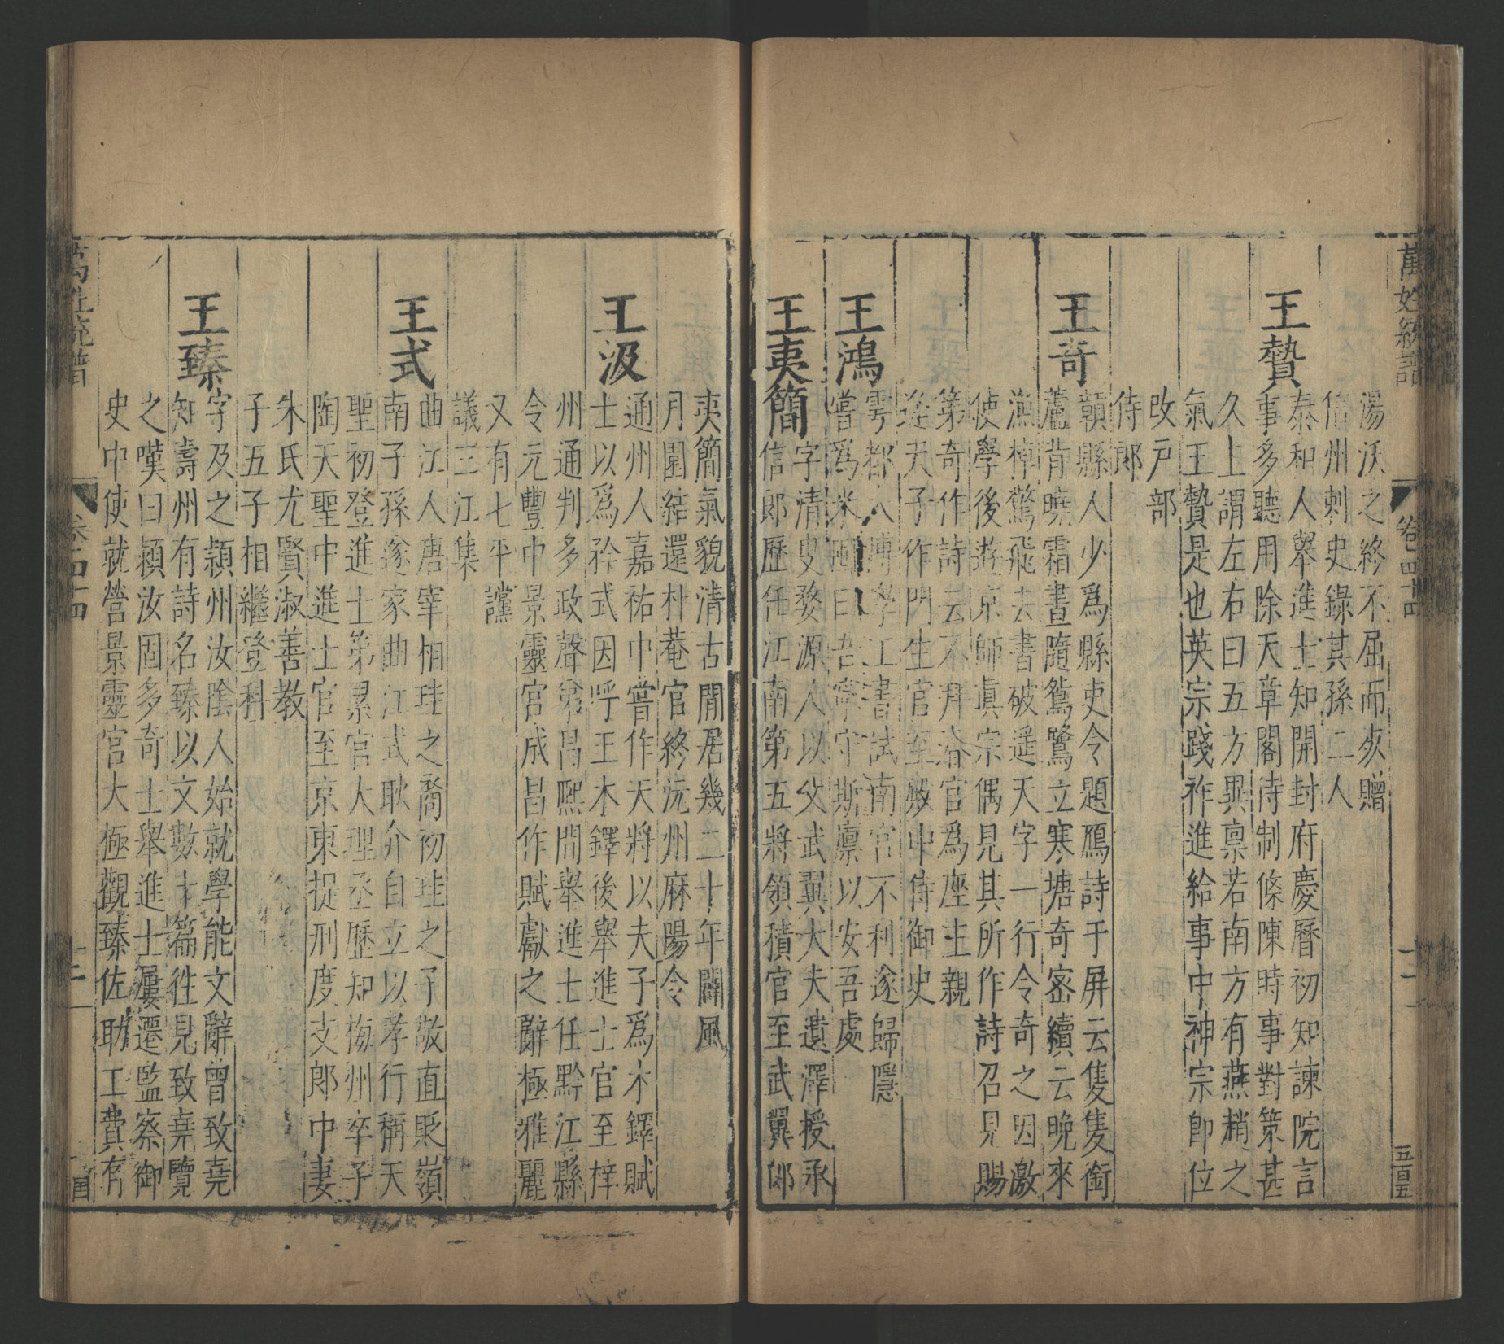 萬姓統譜
卷四十四
五百五
湯沃之終不屈而死贈
信州刺史錄其孫二人
王贄
泰和人舉進士知開封府慶曆初知諫院言
事多聽用除天章閣待制條陳時事對策甚
久上謂左右曰五方異禀若南方有燕趙之
氣王贄是也英宗踐祚進給事中神宗即位
改戶部
侍郎
王奇
贛縣人少爲縣吏令題鴈詩于屏云隻隻銜
蘆背曉霜晝隨鴛鷺立寒塘奇密續云晚來
漁棹驚飛去書破遥天字一行令奇之因激
使學後遊京師真宗偶見其所作詩召見賜
第奇作詩云不拜春官爲座主親
逢天子作門生官至殿中侍御史
王鴻
雩都人博學工書試南官不利遂歸隱
嘗爲米囷曰吾寧守斯廪以安吾處
王夷簡
字清叟婺源人以父武翼大夫遺澤授承
信郎歷任江南第五將領積官至武翼郎
夷簡氣貌清古閒居幾二十年闢風
月園結還朴菴官終沅州麻陽令
王汲
通州人嘉祐中嘗作天將以夫子爲木鐸賦
士以爲矜式因呼王木鐸後舉進士官至梓
州通判多政聲弟昌熈間舉進士任黔江縣
令元豐中景靈宮成昌作賦獻之辭極雅麗
又有七平讜
議三江集
王式
曲江人唐宰相珪之裔初珪之子敬直貶嶺
南子孫遂家曲江式耿介自立以孝行稱天
聖初登進士第累官大理丞歷知梅州卒子
陶天聖中進士官至京東提刑度支郎中妻
朱氏尤賢淑善教
子五子相繼登科
王臻
字及之潁州汝陰人始就學能文辭曾致堯
知壽州有詩名臻以文數十篇往見致堯覽
之嘆曰潁汝固多奇士舉進士屢遷監察御
史中使就營景靈宮大極觀臻佐助工費有
萬姓統譜